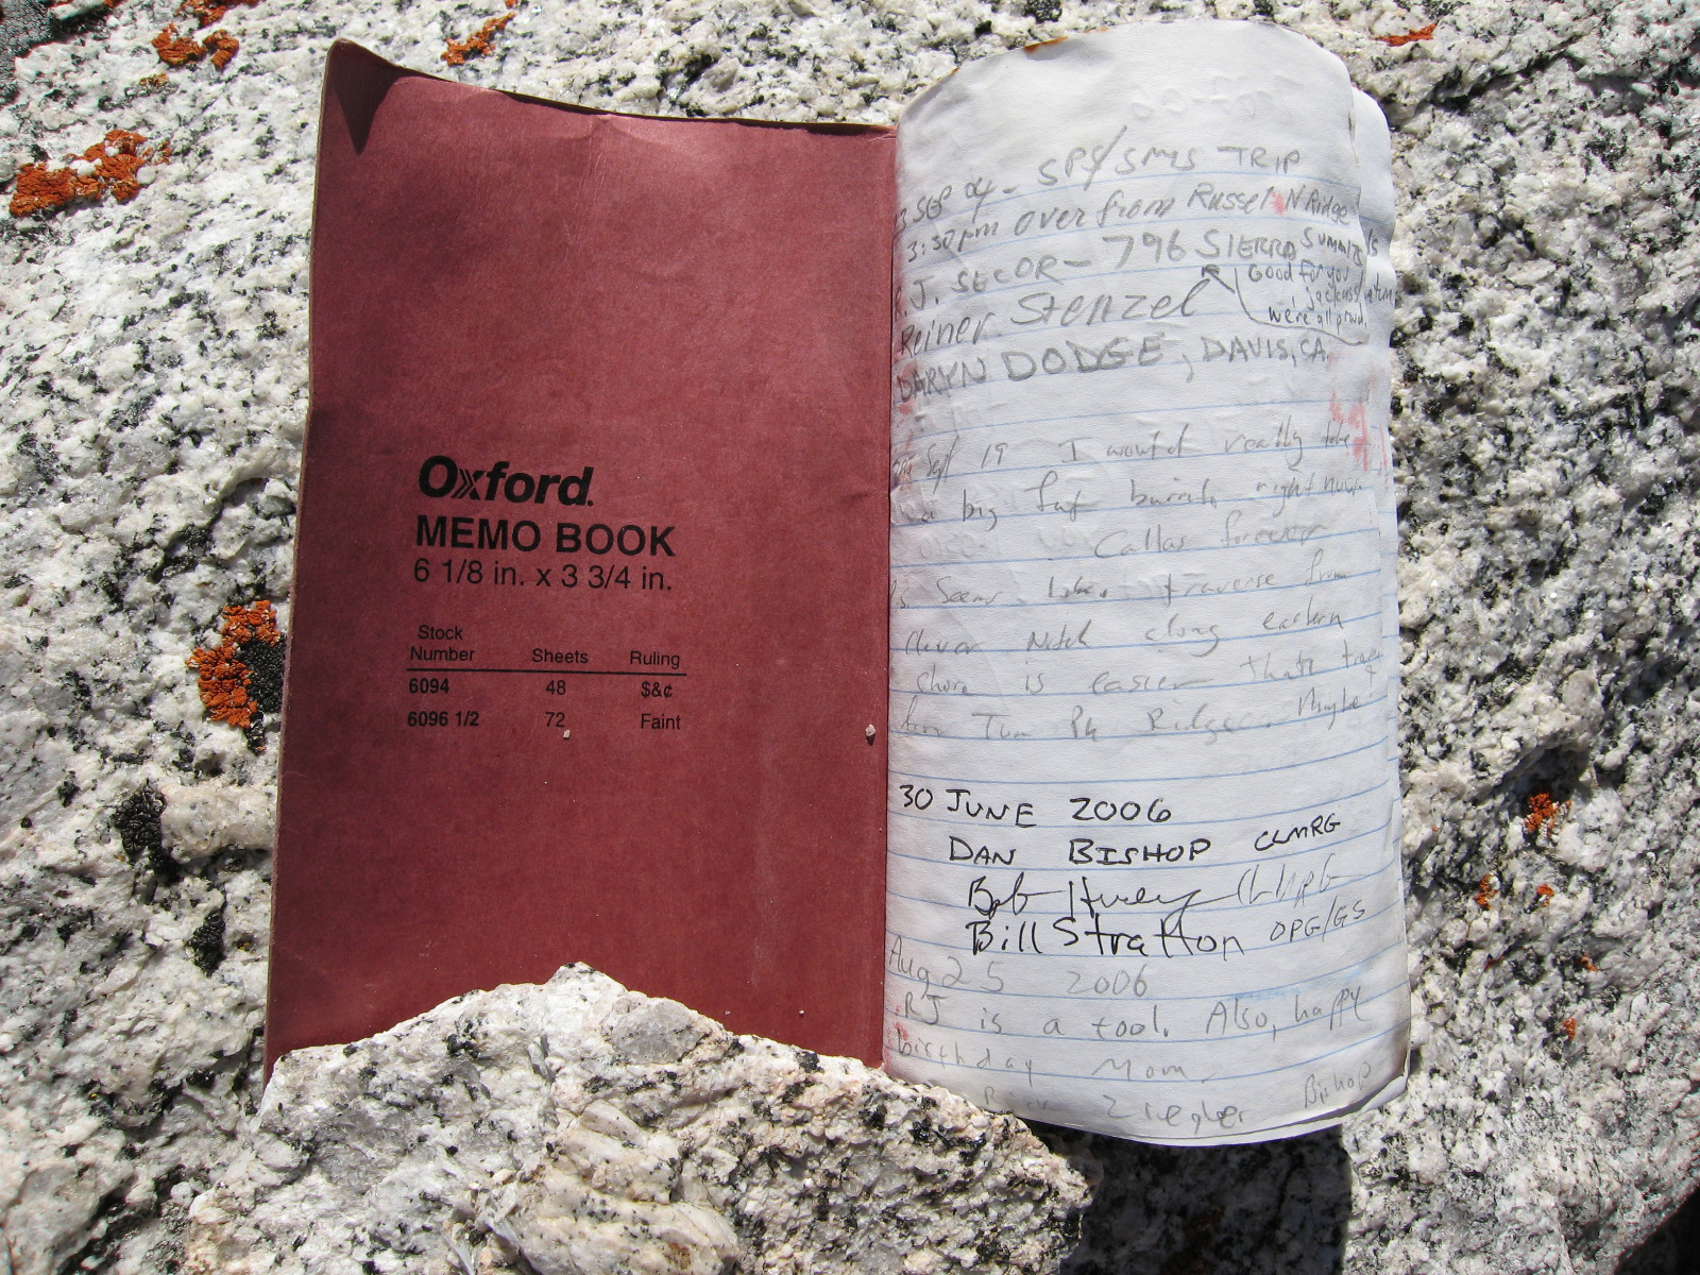 Oxford.
MEMO BOOK
6 1/8 in. x 3 3/4 in.
Stock Number Sheets Ruling
6094 48 $&¢
6096 1/2 72 Faint
SEP 04 - SPS/SMS TRIP
3:30pm over from Russel N Ridge
R.J. SECOR - 796 SIERRA SUMMITS
Good for you
jackass
we're all proud.
Reiner Stenzel
DARYN DODGE, DAVIS, CA.
Sept 19 I would really like
a big fat burrito right now
Callas forever
Seems like traverse from
Clever Notch along eastern
shore is easier than
from Ridge. Maybe
30 JUNE 2006
DAN BISHOP CLMRG
Bob Huey CLMRG
Bill Stratton OPG/GS
Aug 25 2006
RJ is a tool. Also, happy
birthday Mom.
Ziegler Bishop